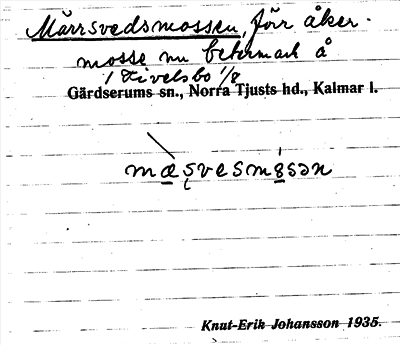 Märrsvedsmossen, förr åker-
mosse nu betesmark å
1 Kivelsbo 1/8
Gärdserums sn., Norra Tjusts hd., Kalmar l.
mæşvesmo̱sən
Knut-Erik Johansson 1935.